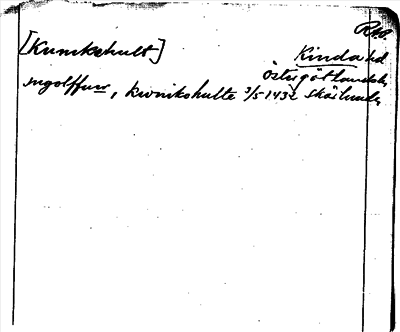 RAp.
[Kunikehult] Kinda hd
Östergötlands
Ingolffum, kwnikshulte 3/5 1432 Skäslunda